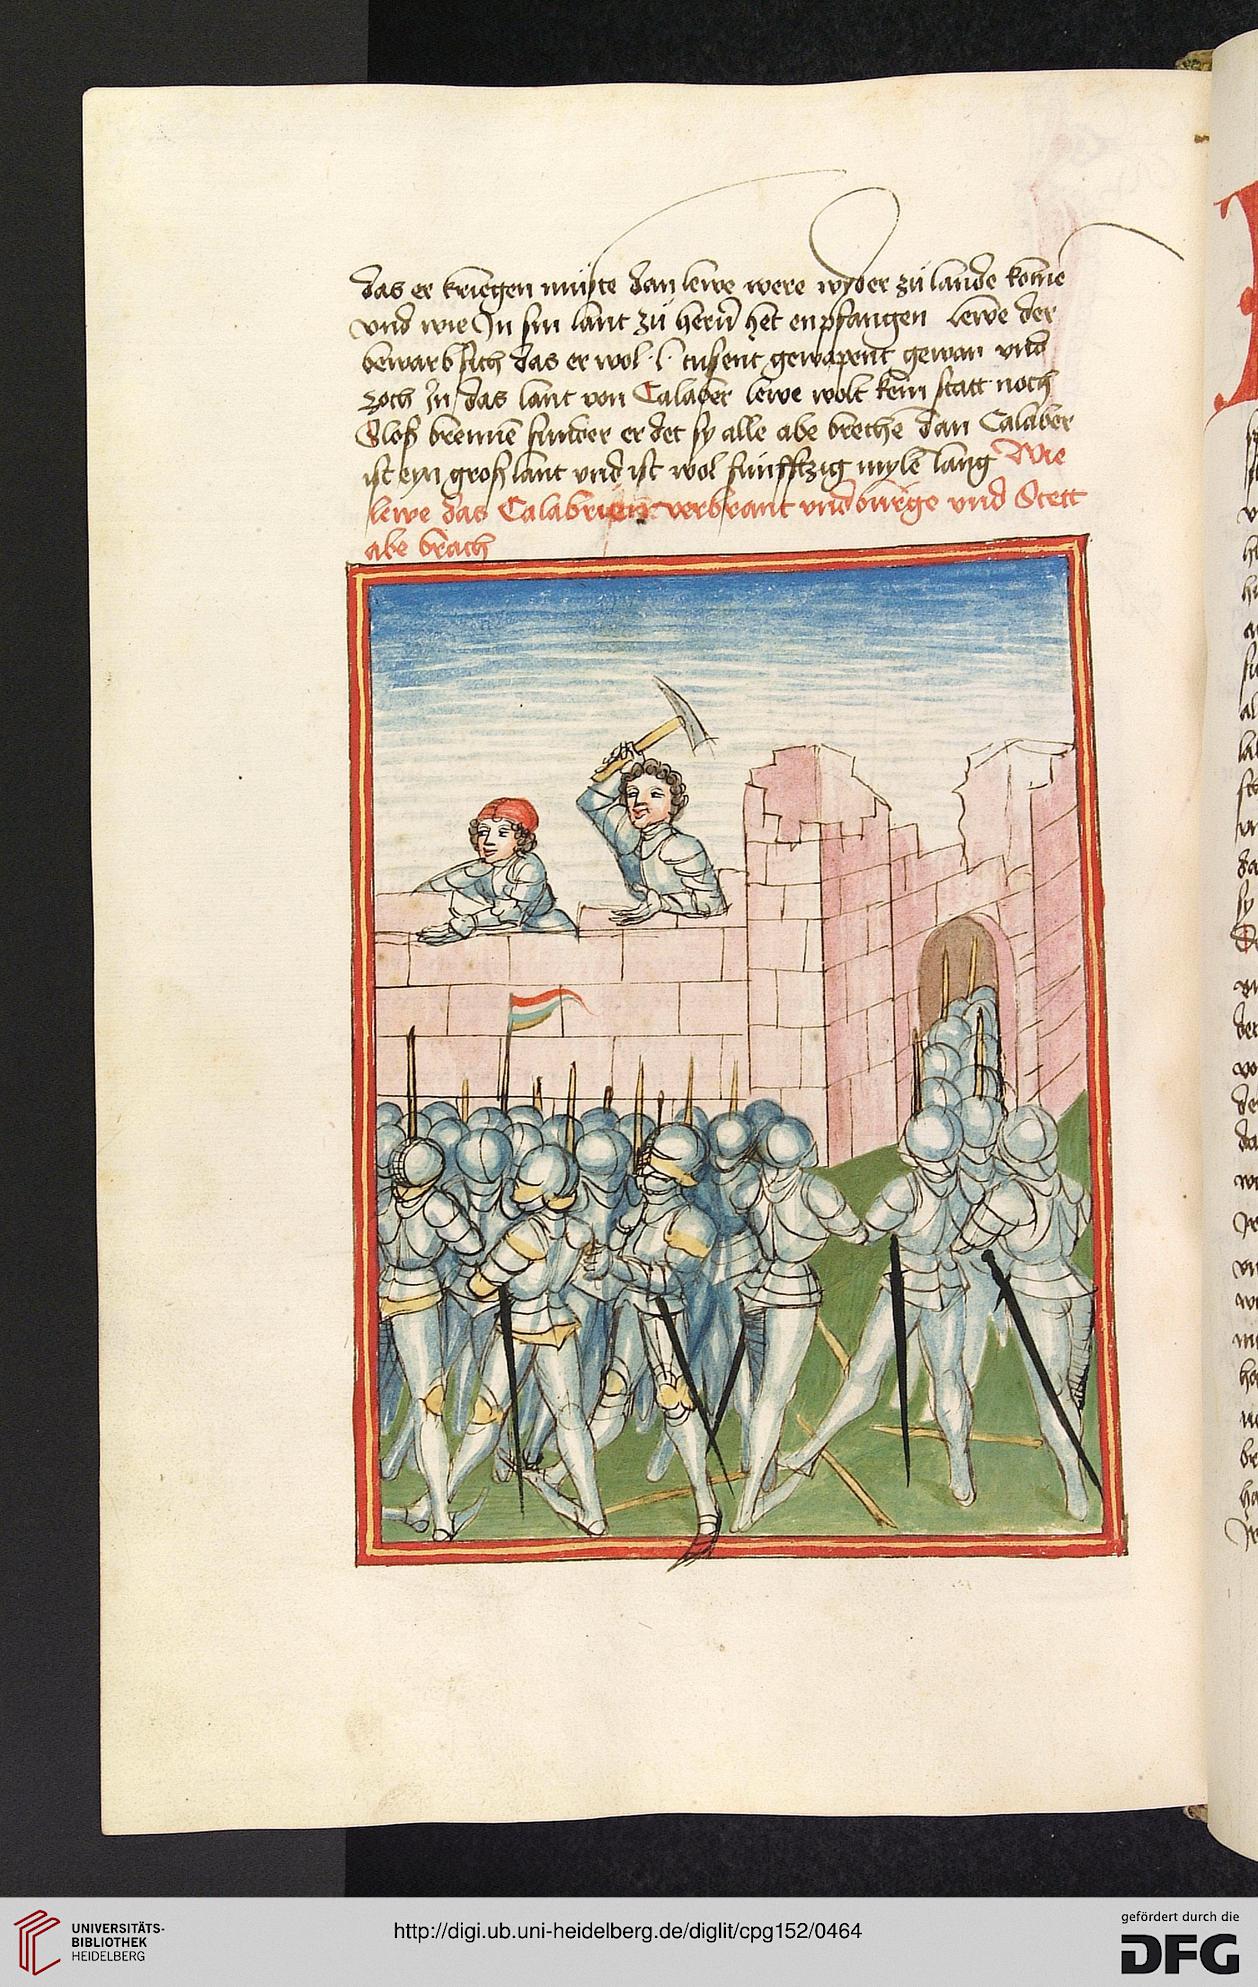 das er kriegen muͤste dan lewe were wyder zü lande kome
vnd wie Jn sin lant zü hern̄ het enpfangen lewe der
bewarb sich das er wol ·l· tusent gewapent gewan vnd
zoch Jn das lant von Calaber lewe wolt kein statt noch
Sloß brennē sunder er det sy alle abe brechē dan Calaber
ist eyn groß lant vnd ist wol fünfftzig mylē lang Wie
lewe das Calabrien verbrant vnd bürge vnd Stett
abe brach
UNIVERSITÄTS-
BIBLIOTHEK
HEIDELBERG
http://digi.ub.uni-heidelberg.de/diglit/cpg152/0464
gefördert durch die
DFG